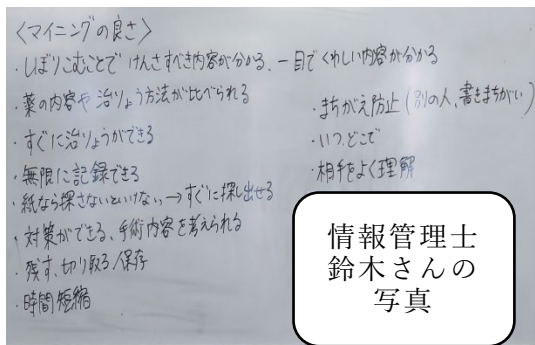 〈マイニングの良さ〉
・しぼりこむことで けんさすべき内容が分かる、一目でくわしい内容が分かる
・薬の内容や治りょう方法が比べられる
・すぐに治りょうができる
・無限に記録できる
・紙なら探さないといけない→すぐに探し出せる
・対策ができる、手術内容を考えられる
・残す、切り取る/保存
・時間短縮
・まちがえ防止(別の人、書きまちがい)
・いつ、どこで
・相手をよく理解
情報管理士
鈴木さんの
写真